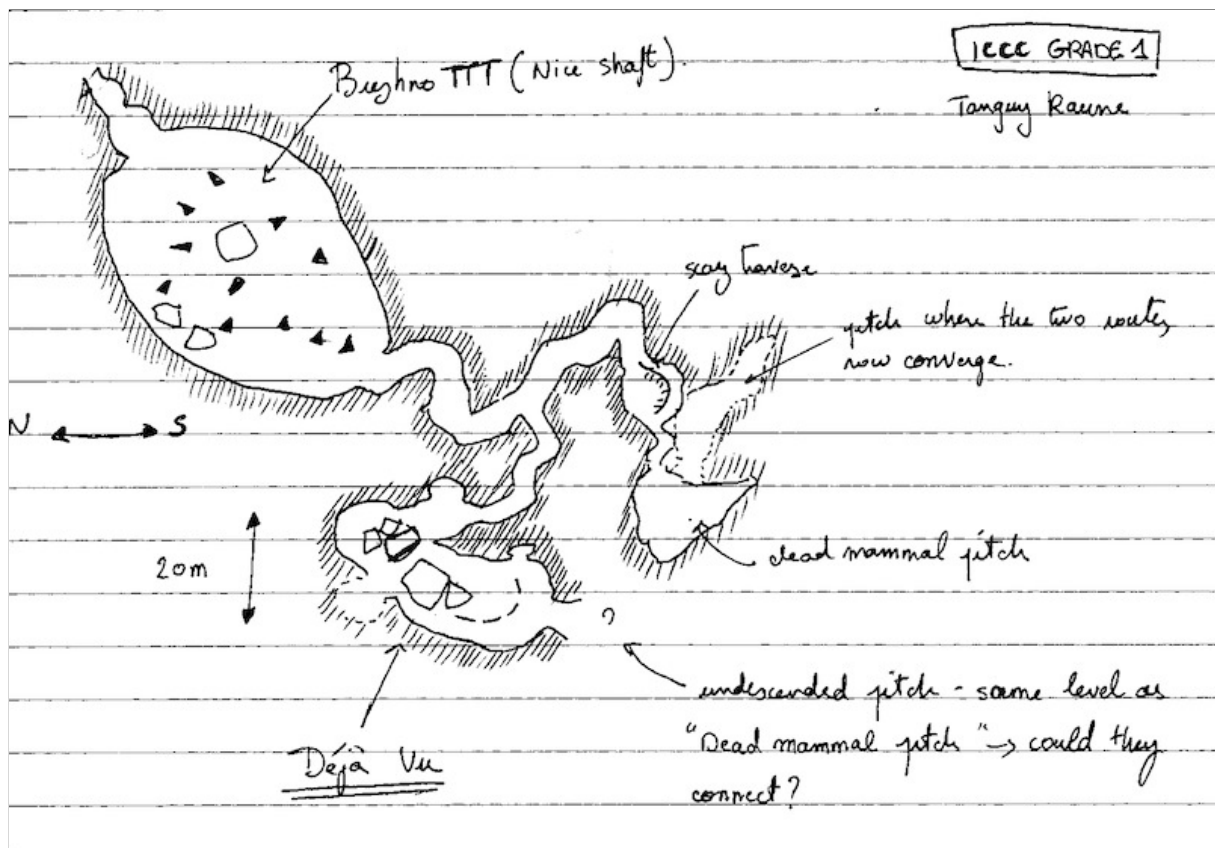 ICCC GRADE 1
Tanguy Racine
Brezhno TTT (Nice shaft).
scary traverse
pitch where the two routes
now converge.
N S
20m
dead mammal pitch
undescended pitch - same level as
"Dead mammal pitch" → could they
connect?
?
Déjà Vu